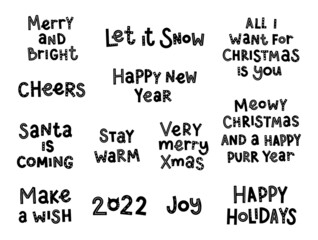 Merry
and
Bright
Let it Snow
All I
Want for
Christmas
is you
Cheers
Happy New
Year
Meowy
Christmas
and a Happy
Purr Year
Santa
is
coming
Stay
warm
Very
merry
Xmas
Make
a wish
2022
Joy
Happy
Holidays